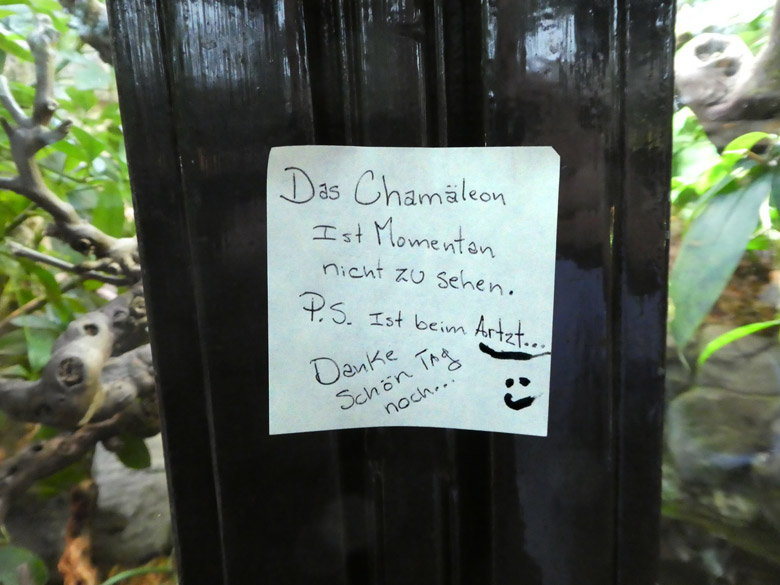 Das Chamäleon
Ist Momentan
nicht zu sehen.
P.S. Ist beim Artzt...
Danke
Schön Tag
noch...